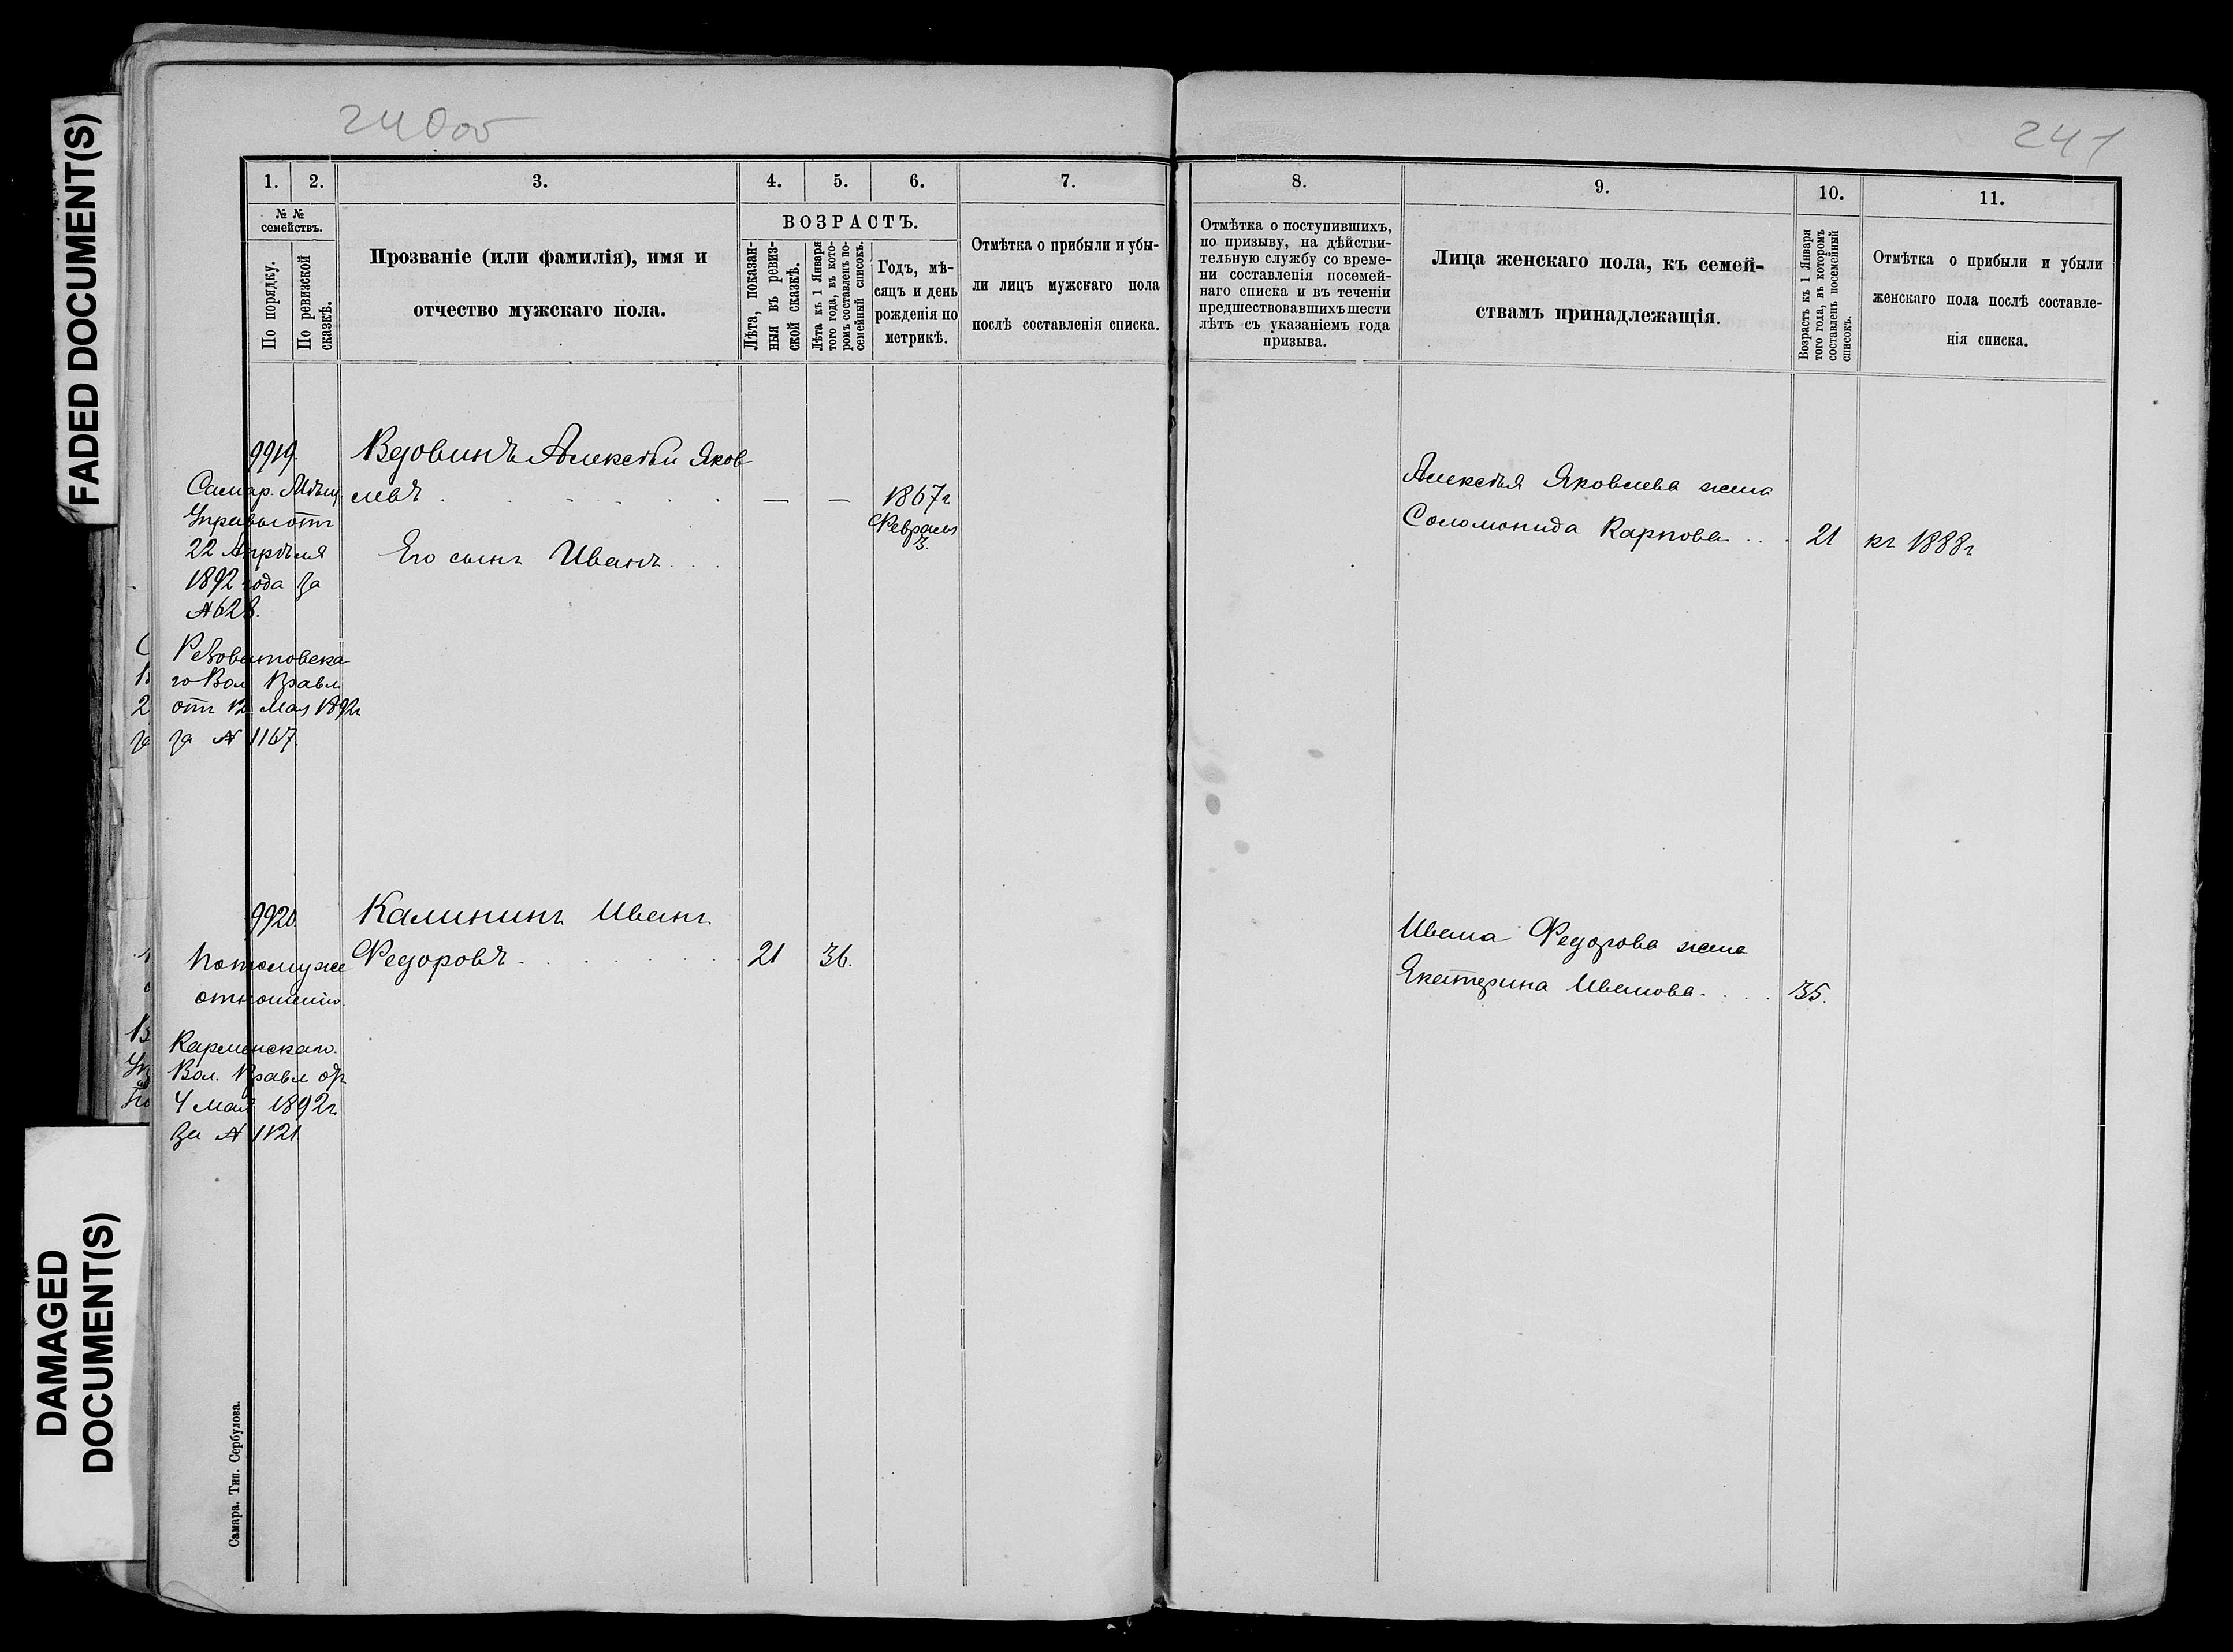 FADED DOCUMENT(S)
DAMAGED
DOCUMENT(S)
240об
1. 2. 3. 4. 5. 6. 7.
№ №
семействъ.
По порядку.
По ревизской
сказкѣ.
Прозваніе (или фамилія), имя и
отчество мужскаго пола.
ВОЗРАСТЪ.
Лѣта, показан-
ныя въ ревиз-
ской сказкѣ.
Лѣта къ 1 Января
того года, въ кото-
ромъ составленъ по-
семейный списокъ.
Годъ, мѣ-
сяцъ и день
рожденія по
метрикѣ.
Отмѣтка о прибыли и убы-
ли лицъ мужскаго пола
послѣ составленія списка.
9919.
Самар. Мѣщ.
Управы отъ
22 Апрѣля
1892 года за
№ 628.
Вдовинъ Алексѣй Яков-
левъ — — 1867 г.
Февраля
3.
Его сынъ Иванъ
го Вол Правл
отъ 12 Мая 1892г
за № 1167.
9920.
Потомуже
отношенію.
Калининъ Иванъ
Федоровъ 21 36.
Вол. Правл отъ
4 мая 1892г.
за № 1121.
Самара. Тип. Сербулова.
241
8. 9. 10. 11.
Отмѣтка о поступившихъ,
по призыву, на дѣйстви-
тельную службу со време-
ни составленія посемей-
наго списка и въ теченіи
предшествовавшихъ шести
лѣтъ съ указаніемъ года
призыва.
Лица женскаго пола, къ семей-
ствамъ принадлежащія.
Возрастъ къ 1 Января
того года, въ которомъ
составленъ посемейный
списокъ.
Отмѣтка о прибыли и убыли
женскаго пола послѣ составле-
нія списка.
Алексѣя Яковлева жена
Соломонида Карпова 21 къ 1888г
Ивана Федорова жена
Екатерина Иванова 35.